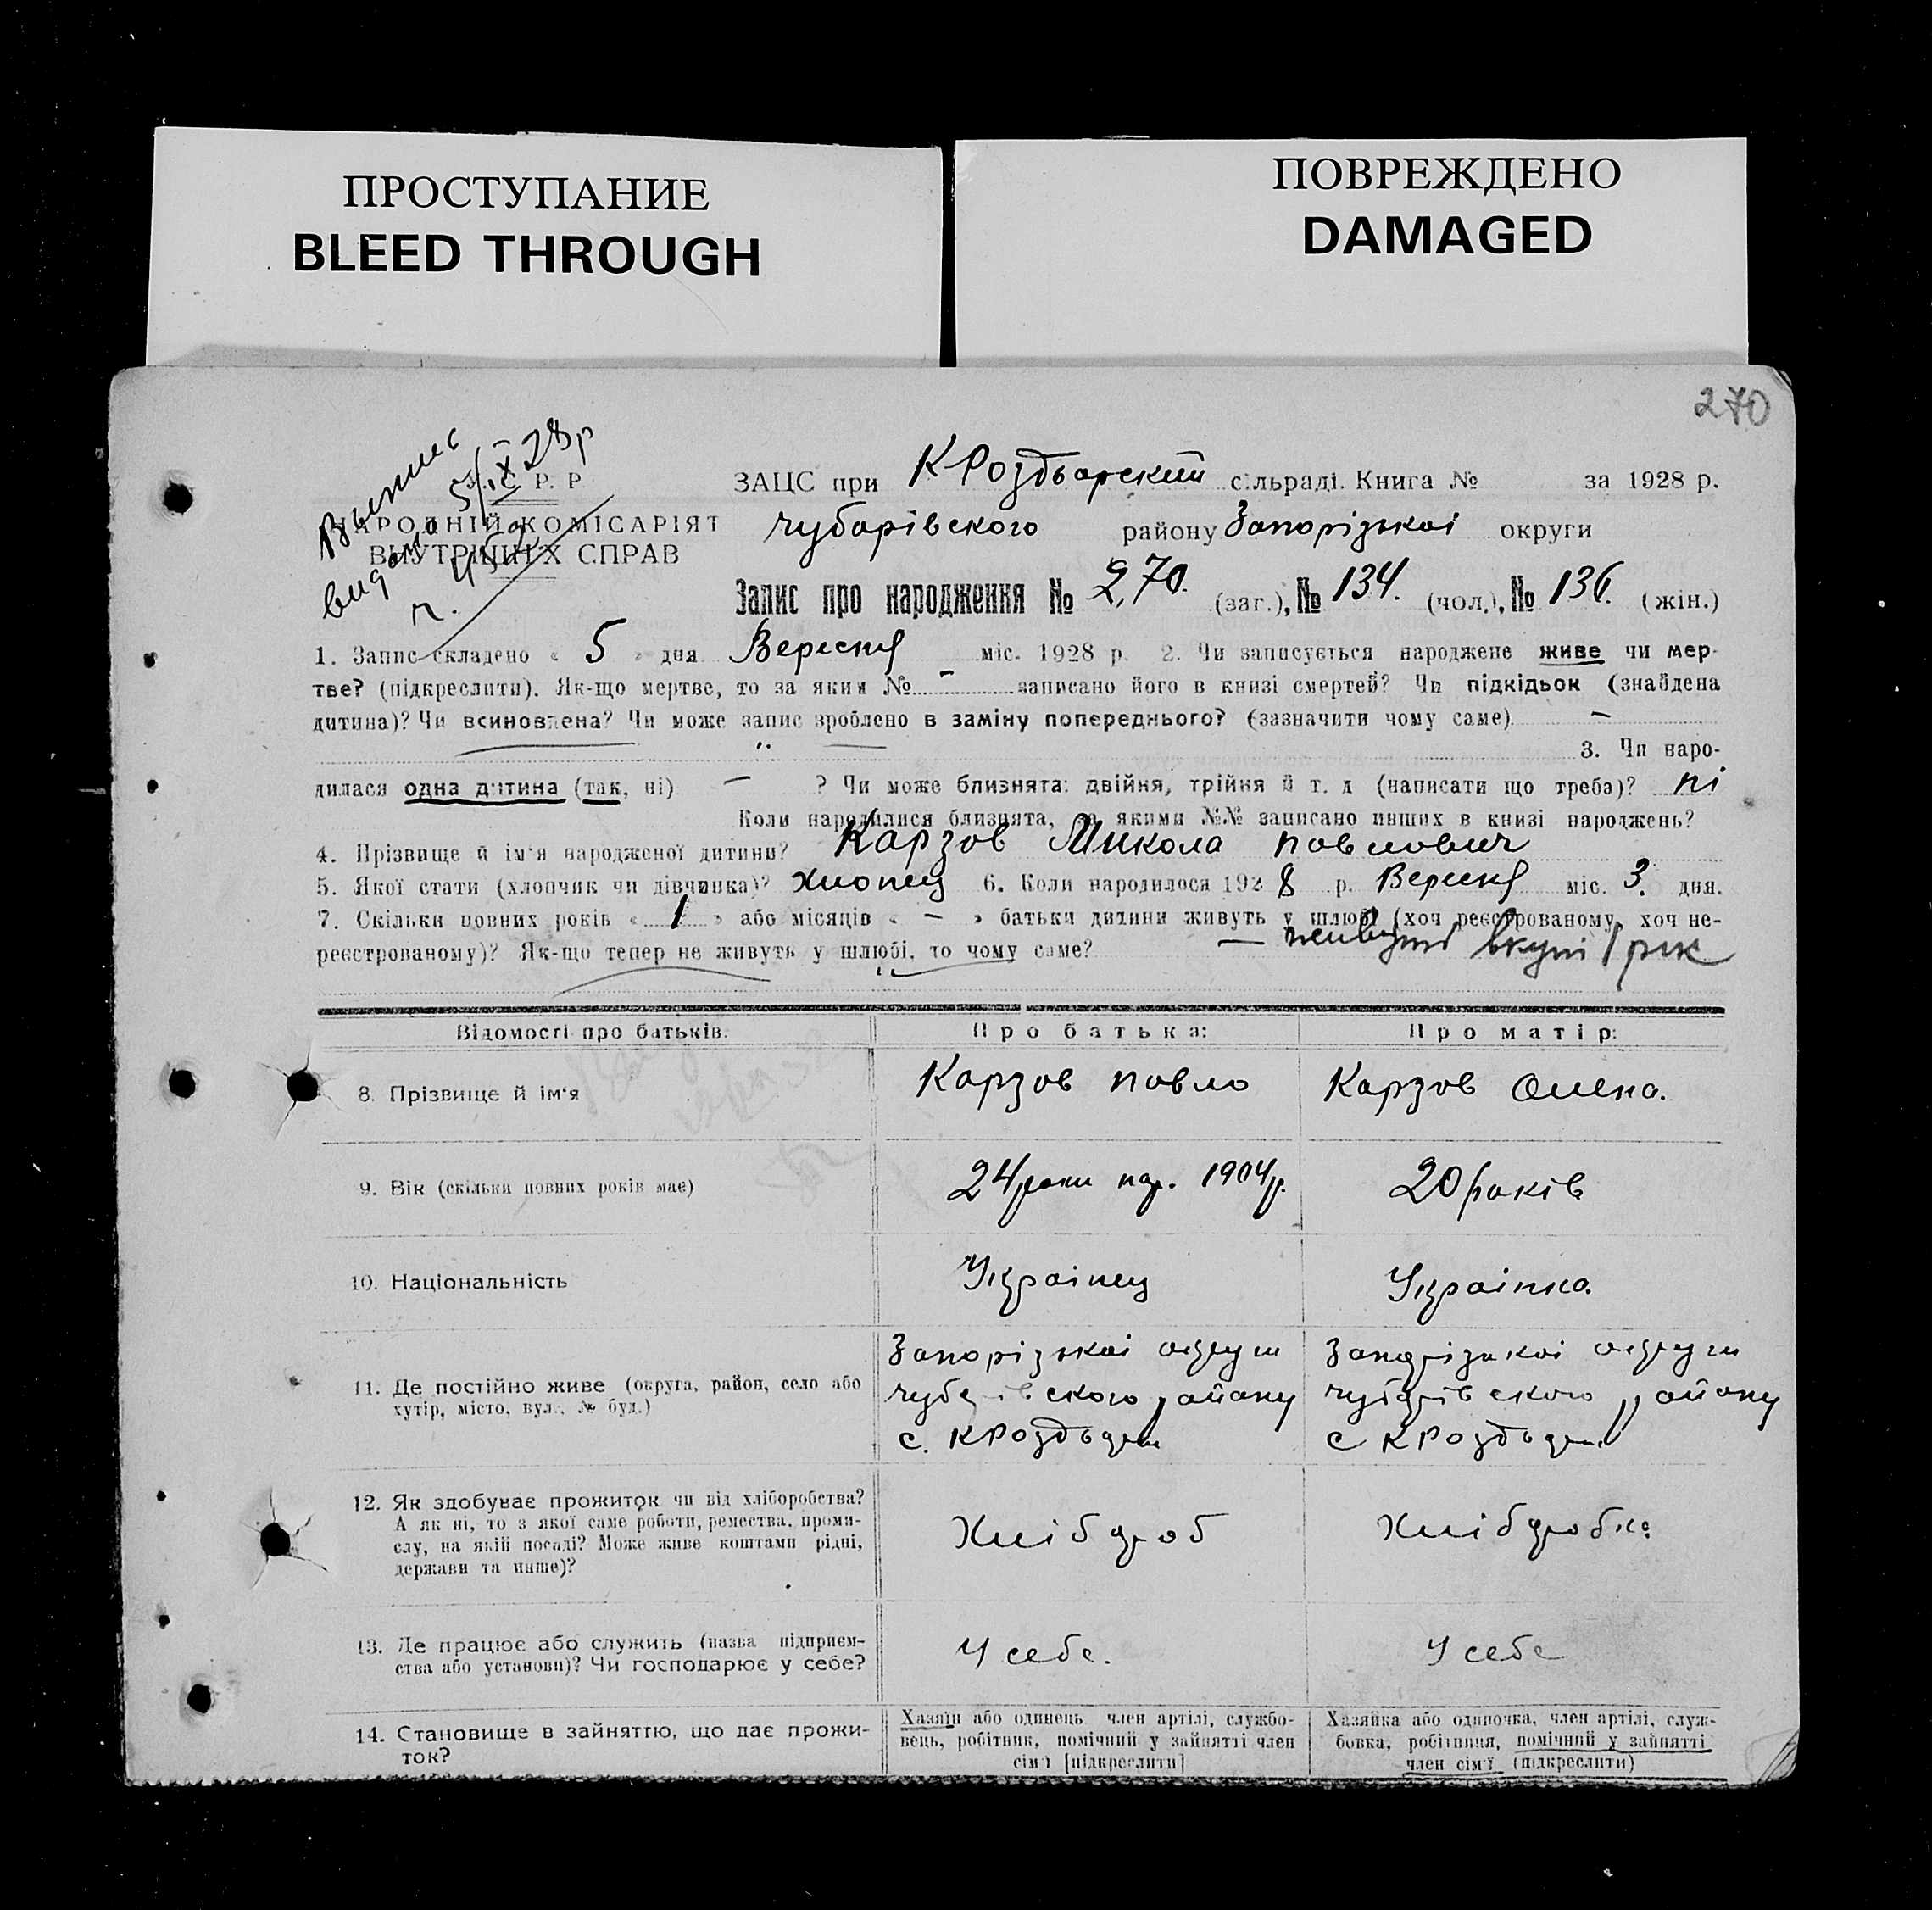 ПРОСТУПАНИЕ
BLEED THROUGH
ПОВРЕЖДЕНО
DAMAGED
270
Выпис
видано 5/IX 28р
У. С. Р. Р.
НАРОДНІЙ КОМІСАРІЯТ
ВНУТРІШНІХ СПРАВ
ЗАЦС при К Роздорский сільраді. Книга № за 1928 р.
Чубарівского району Запорізькоі округи
Запис про народження № 270. (заг.), № 134. (чол.), № 136. (жін.)
1. Запис складено « 5 » дня Вересня міс. 1928 р. 2. Чи записується народжене живе чи мер-
тве? (підкреслити). Як-що мертве, то за яким № - записано його в книзі смертей? Чи підкідьок (знайдена
дитина)? Чи всиновлена? Чи може запис зроблено в заміну попереднього? (зазначити чому саме) —
3. Чи наро-
дилася одна дитина (так, ні) — ? Чи може близнята: двійня, трійня й т. д (написати що треба)? ні
Коли народилися близнята, за якими №№ записано инших в книзі народжень?
4. Прізвище й ім'я народженої дитини? Карзов Микола Павлович
5. Якої стати (хлопчик чи дівчинка)? Хлопец 6. Коли народилося 1928 р. Вересня міс. 3. дня.
7. Скільки повних років « 1 » або місяців « — » батьки дитини живуть у шлюбі (хоч реєстрованому, хоч не-
реєстрованому)? Як-що тепер не живуть у шлюбі, то чому саме? — живуть вкупі 1 рік
Відомості про батьків: Про батька: Про матір:
8. Прізвище й ім'я Карзов Павло Карзов Олена.
9. Вік (скільки повних років має) 24 роки нар. 1904 р. 20 років
10. Національність Украінец Украінка.
11. Де постійно живе (округа, район, село або
хутір, місто, вул., № буд.)
Запорізькоі округи
Чубарівского району
с. К Роздори
Запорізькоі округи
Чубарівского району
с К Роздори
12. Як здобуває прожиток чи від хліборобства?
А як ні, то з якої саме роботи, ремества, проми-
слу, на якій посаді? Може живе коштами рідні,
держави та инше)?
Хлібороб Хліборобка
13. Де працює або служить (назва підприєм-
ства або установи)? Чи господарює у себе?
У себе. У себе
14. Становище в зайняттю, що дає прожи-
ток?
Хазяїн або одинець член артілі, службо-
вець, робітник, помічний у зайнятті член
сім'ї [підкреслити]
Хазяйка або одиночка, член артілі, служ-
бовка, робітниця, помічний у зайнятті
член сім'ї (підкреслити)